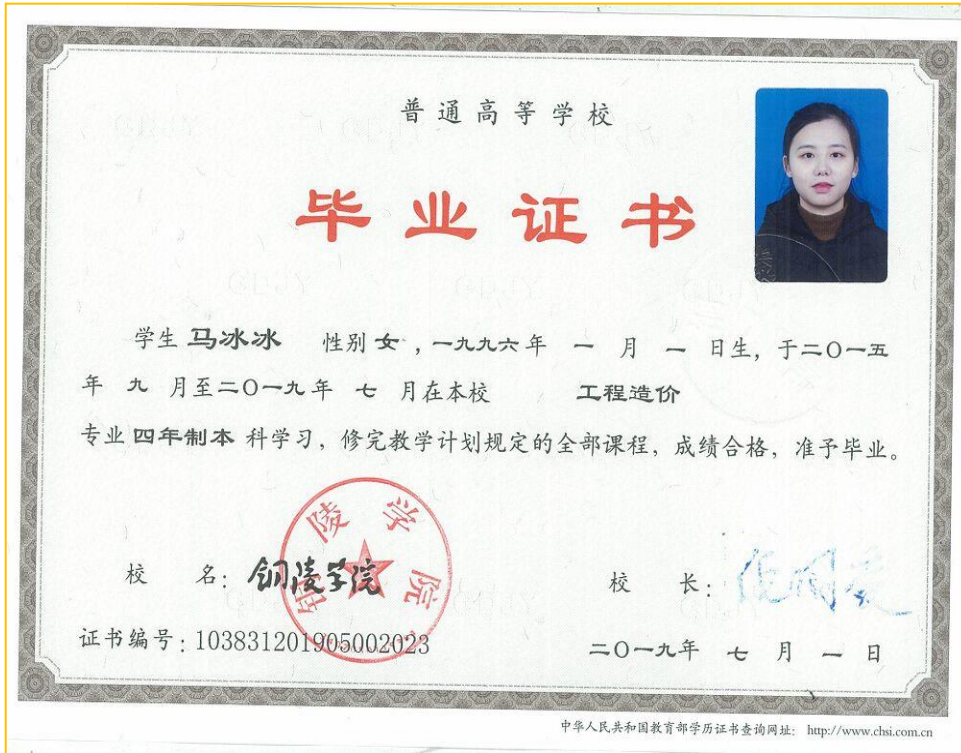 普通高等学校
毕业证书
学生 马冰冰 性别 女 ，一九九六年 一 月 一 日生，于二〇一五
年 九 月至二〇一九年 七 月在本校 工程造价
专业 四年制本 科学习，修完教学计划规定的全部课程，成绩合格，准予毕业。
校 名：铜陵学院
铜陵学院
校 长：
证书编号：103831201905002023
二〇一九年 七 月 一 日
中华人民共和国教育部学历证书查询网址： http://www.chsi.com.cn